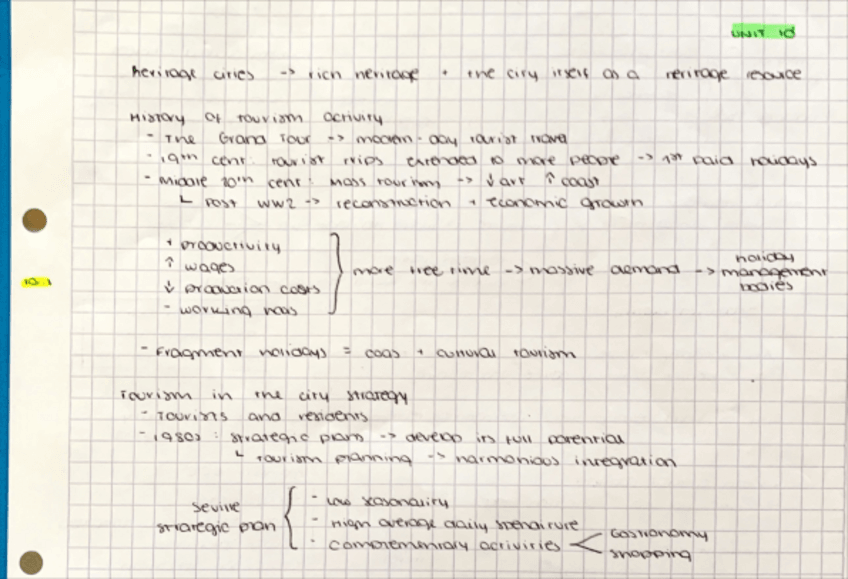 UNIT 10
Heritage cities -> rich heritage + the city itself as a heritage resource
History of tourism activity
- The Grand Tour -> modern-day tourist travel
- 19th cent: tourist trips extended to more people -> 1st paid holidays
- Middle 20th cent: Mass tourism -> ↓ art ↑ coast
└ Post WW2 -> reconstruction + economic growth
+ productivity
↑ wages
↓ production costs
- working hours
more free time -> massive demand -> holiday management bodies
10.1
- Fragment holidays = coas + cultural tourism
Tourism in the city strategy
- Tourists and residents
- 1980s: strategic plans -> develop its full potential
└ Tourism planning -> harmonious integration
Seville strategic plan
- Low seasonality
- High average daily spenditure
- Complementary activities
Gastronomy
shopping